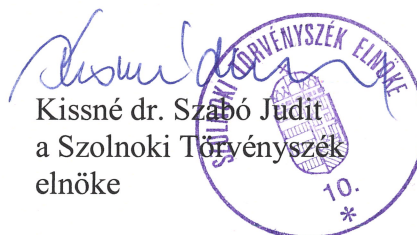 Kissné dr. Szabó Judit
a Szolnoki Törvényszék
elnöke
SZOLNOKI TÖRVÉNYSZÉK ELNÖKE
10.
*